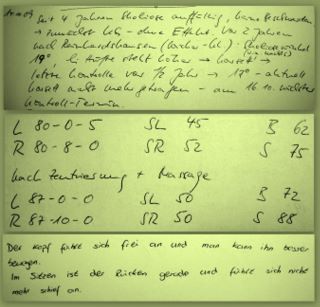 Seit 4 Jahren Skoliose auffällig, keine Beschwerden
→ zunächst KG - ohne Effekt. Vor 2 Jahren
nach
19°, li Hüfte steht höher → Korsett →
letzte Kontrolle vor ½ Jahr → 17° - aktuell
Korsett nicht mehr getragen - am 16.10. nächster
Kontroll-Termin.
L 80-0-5 SL 45 B 62
R 80-8-0 SR 52 S 75
nach Zentrierung + Massage
L 87-0-0 SL 50 B 72
R 87-10-0 SR 50 S 88
Der Kopf fühlt sich frei an und man kann ihn besser
bewegen.
Im Sitzen ist der Rücken gerade und fühlt sich nicht
mehr schief an.